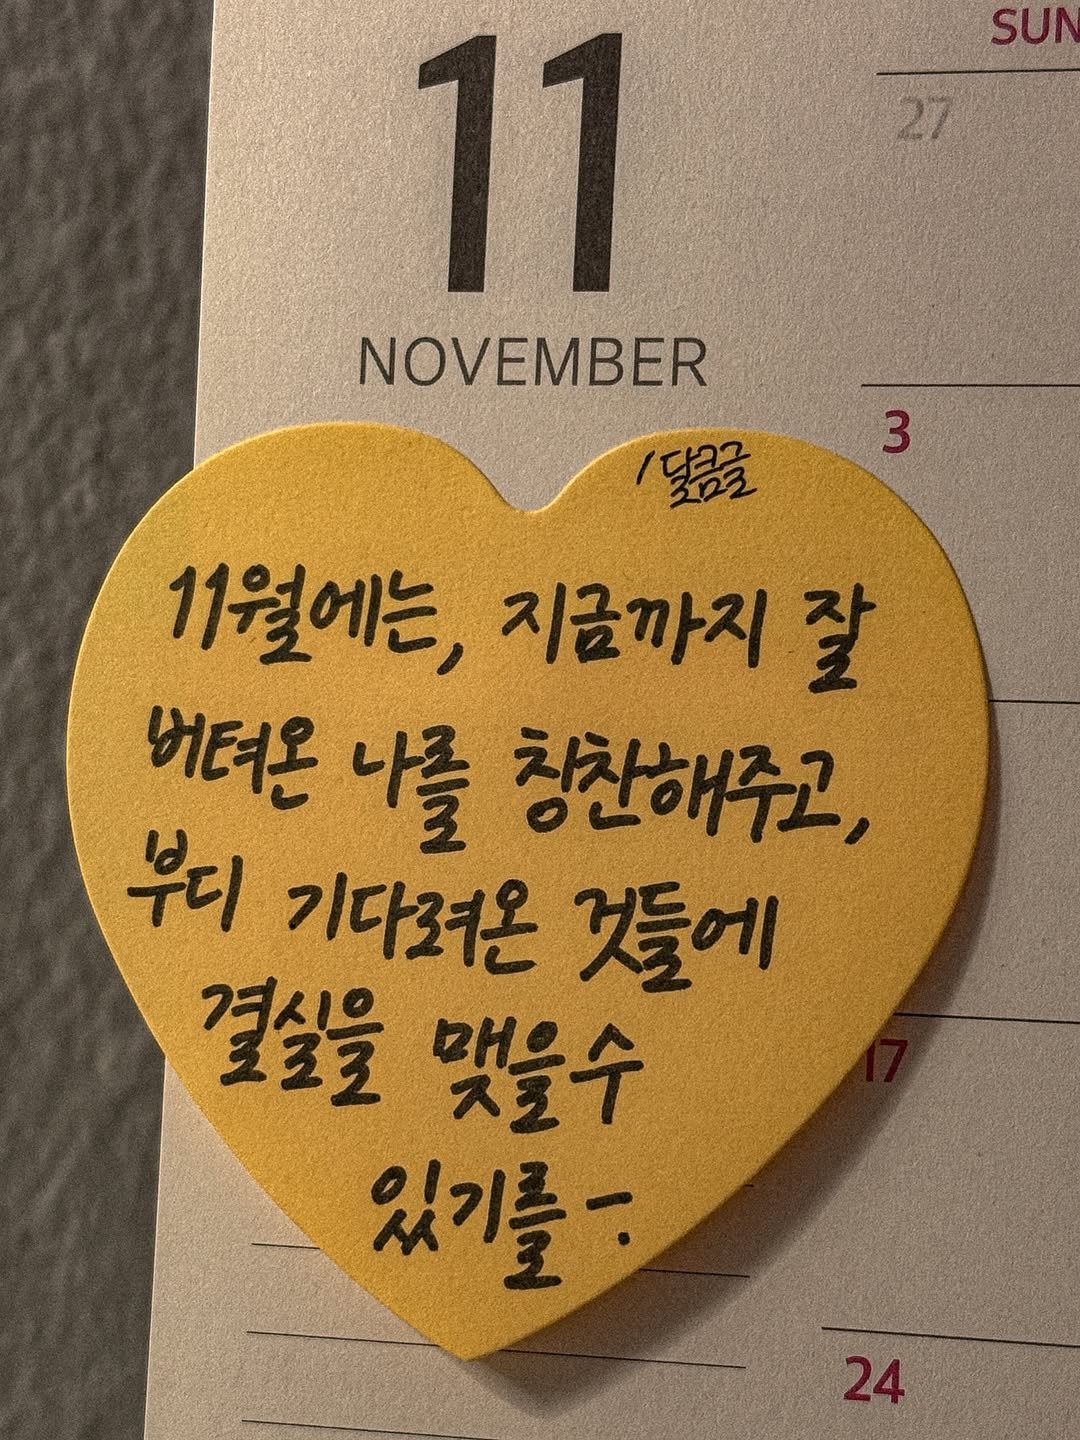 11
NOVEMBER
SUN
27
3
/달콤글
11월에는, 지금까지 잘
버텨온 나를 칭찬해주고,
부디 기다려온 것들에
결실을 맺을수
있기를-.
17
24